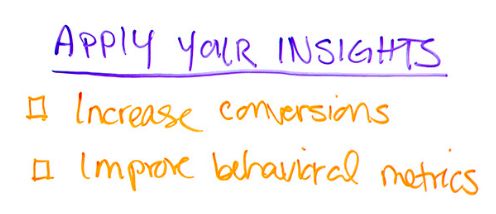 APPLY YOUR INSIGHTS
Increase conversions
Improve behavioral metrics